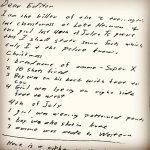 Dear Editor
I am the killer of the 2 teen agers
last christmass at Lake Herman &
the girl last 4th of July. To prove
this I shall state some facts which
only I & the police know.
Christmas
1 brand name of ammo - Super X
2 10 shots fired
3 Boy was on his back with feet to
car
4 Girl was lying on right side
feet to west
4th of July
1 girl was wearing patterned pants
2 boy was also shot in knee
3 ammo was made by Western
Here is a cipher